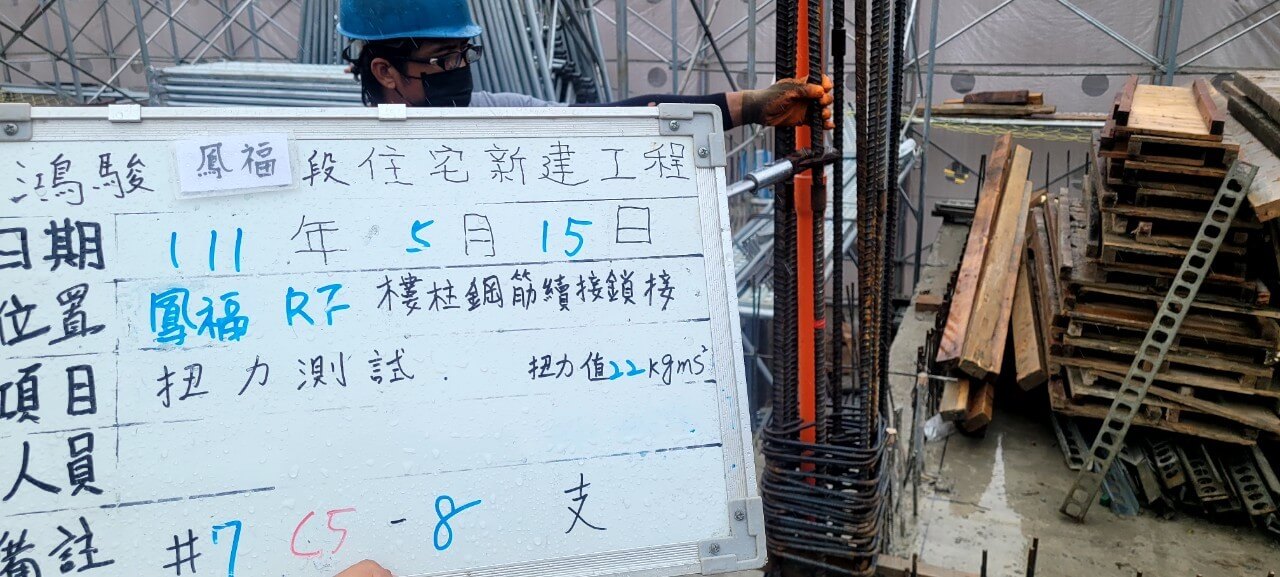 鴻駿 鳳福 段住宅新建工程
日期 111 年 5 月 15 日
位置 鳳福 RF 樓柱鋼筋續接鎖接
項目 扭力測試. 扭力值22kgms²
人員
備註 #7 C5 - 8 支